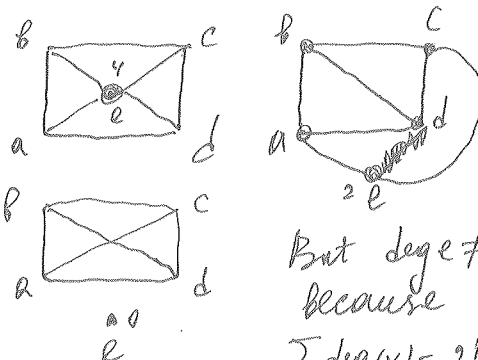 b c
4
e
a d
b c
a d
e
b C
a d
2 e
But deg e ≠
because